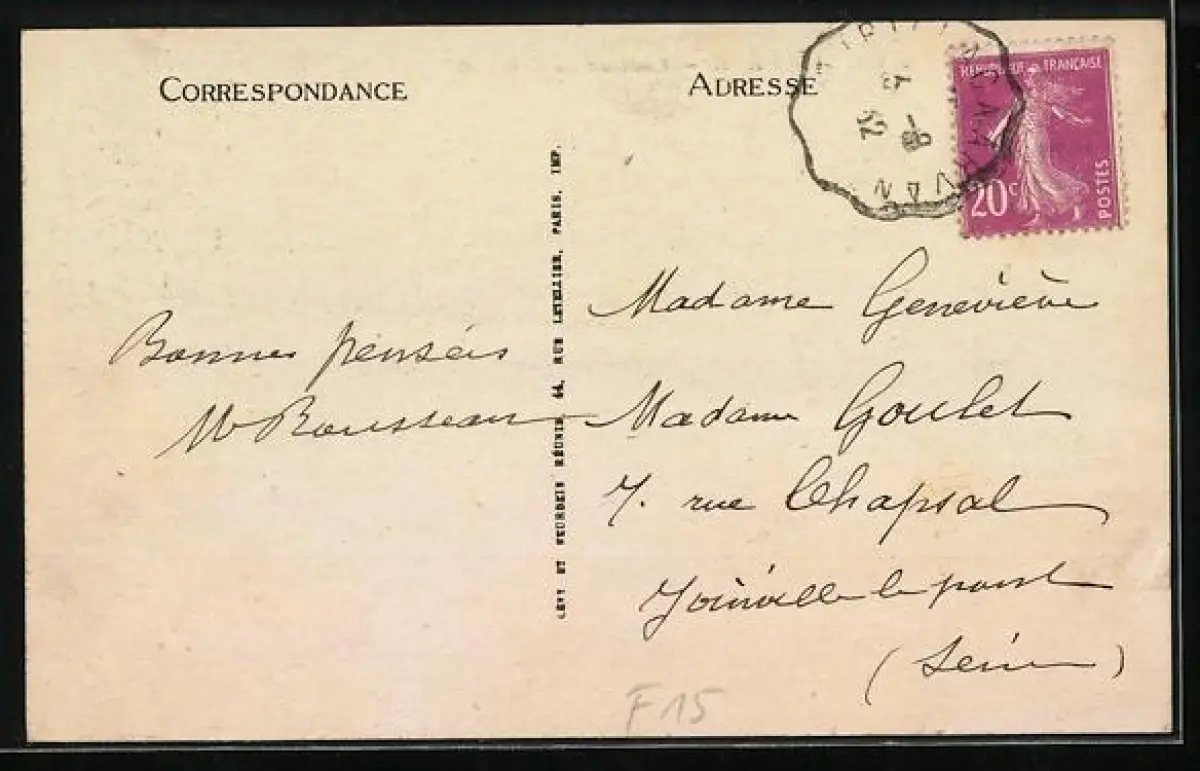 CORRESPONDANCE
ADRESSE
REPUBLIQUE FRANÇAISE
20c
POSTES
8-
5
32
Bonnes pensées
M Rousseau
LÉVY ET NEURDEIN RÉUNIS, 44, RUE LETELLIER, PARIS, IMP.
Madame Geneviève
Madame Goulet
7. rue Chapsal
Joinville le pont
(Seine)
F15